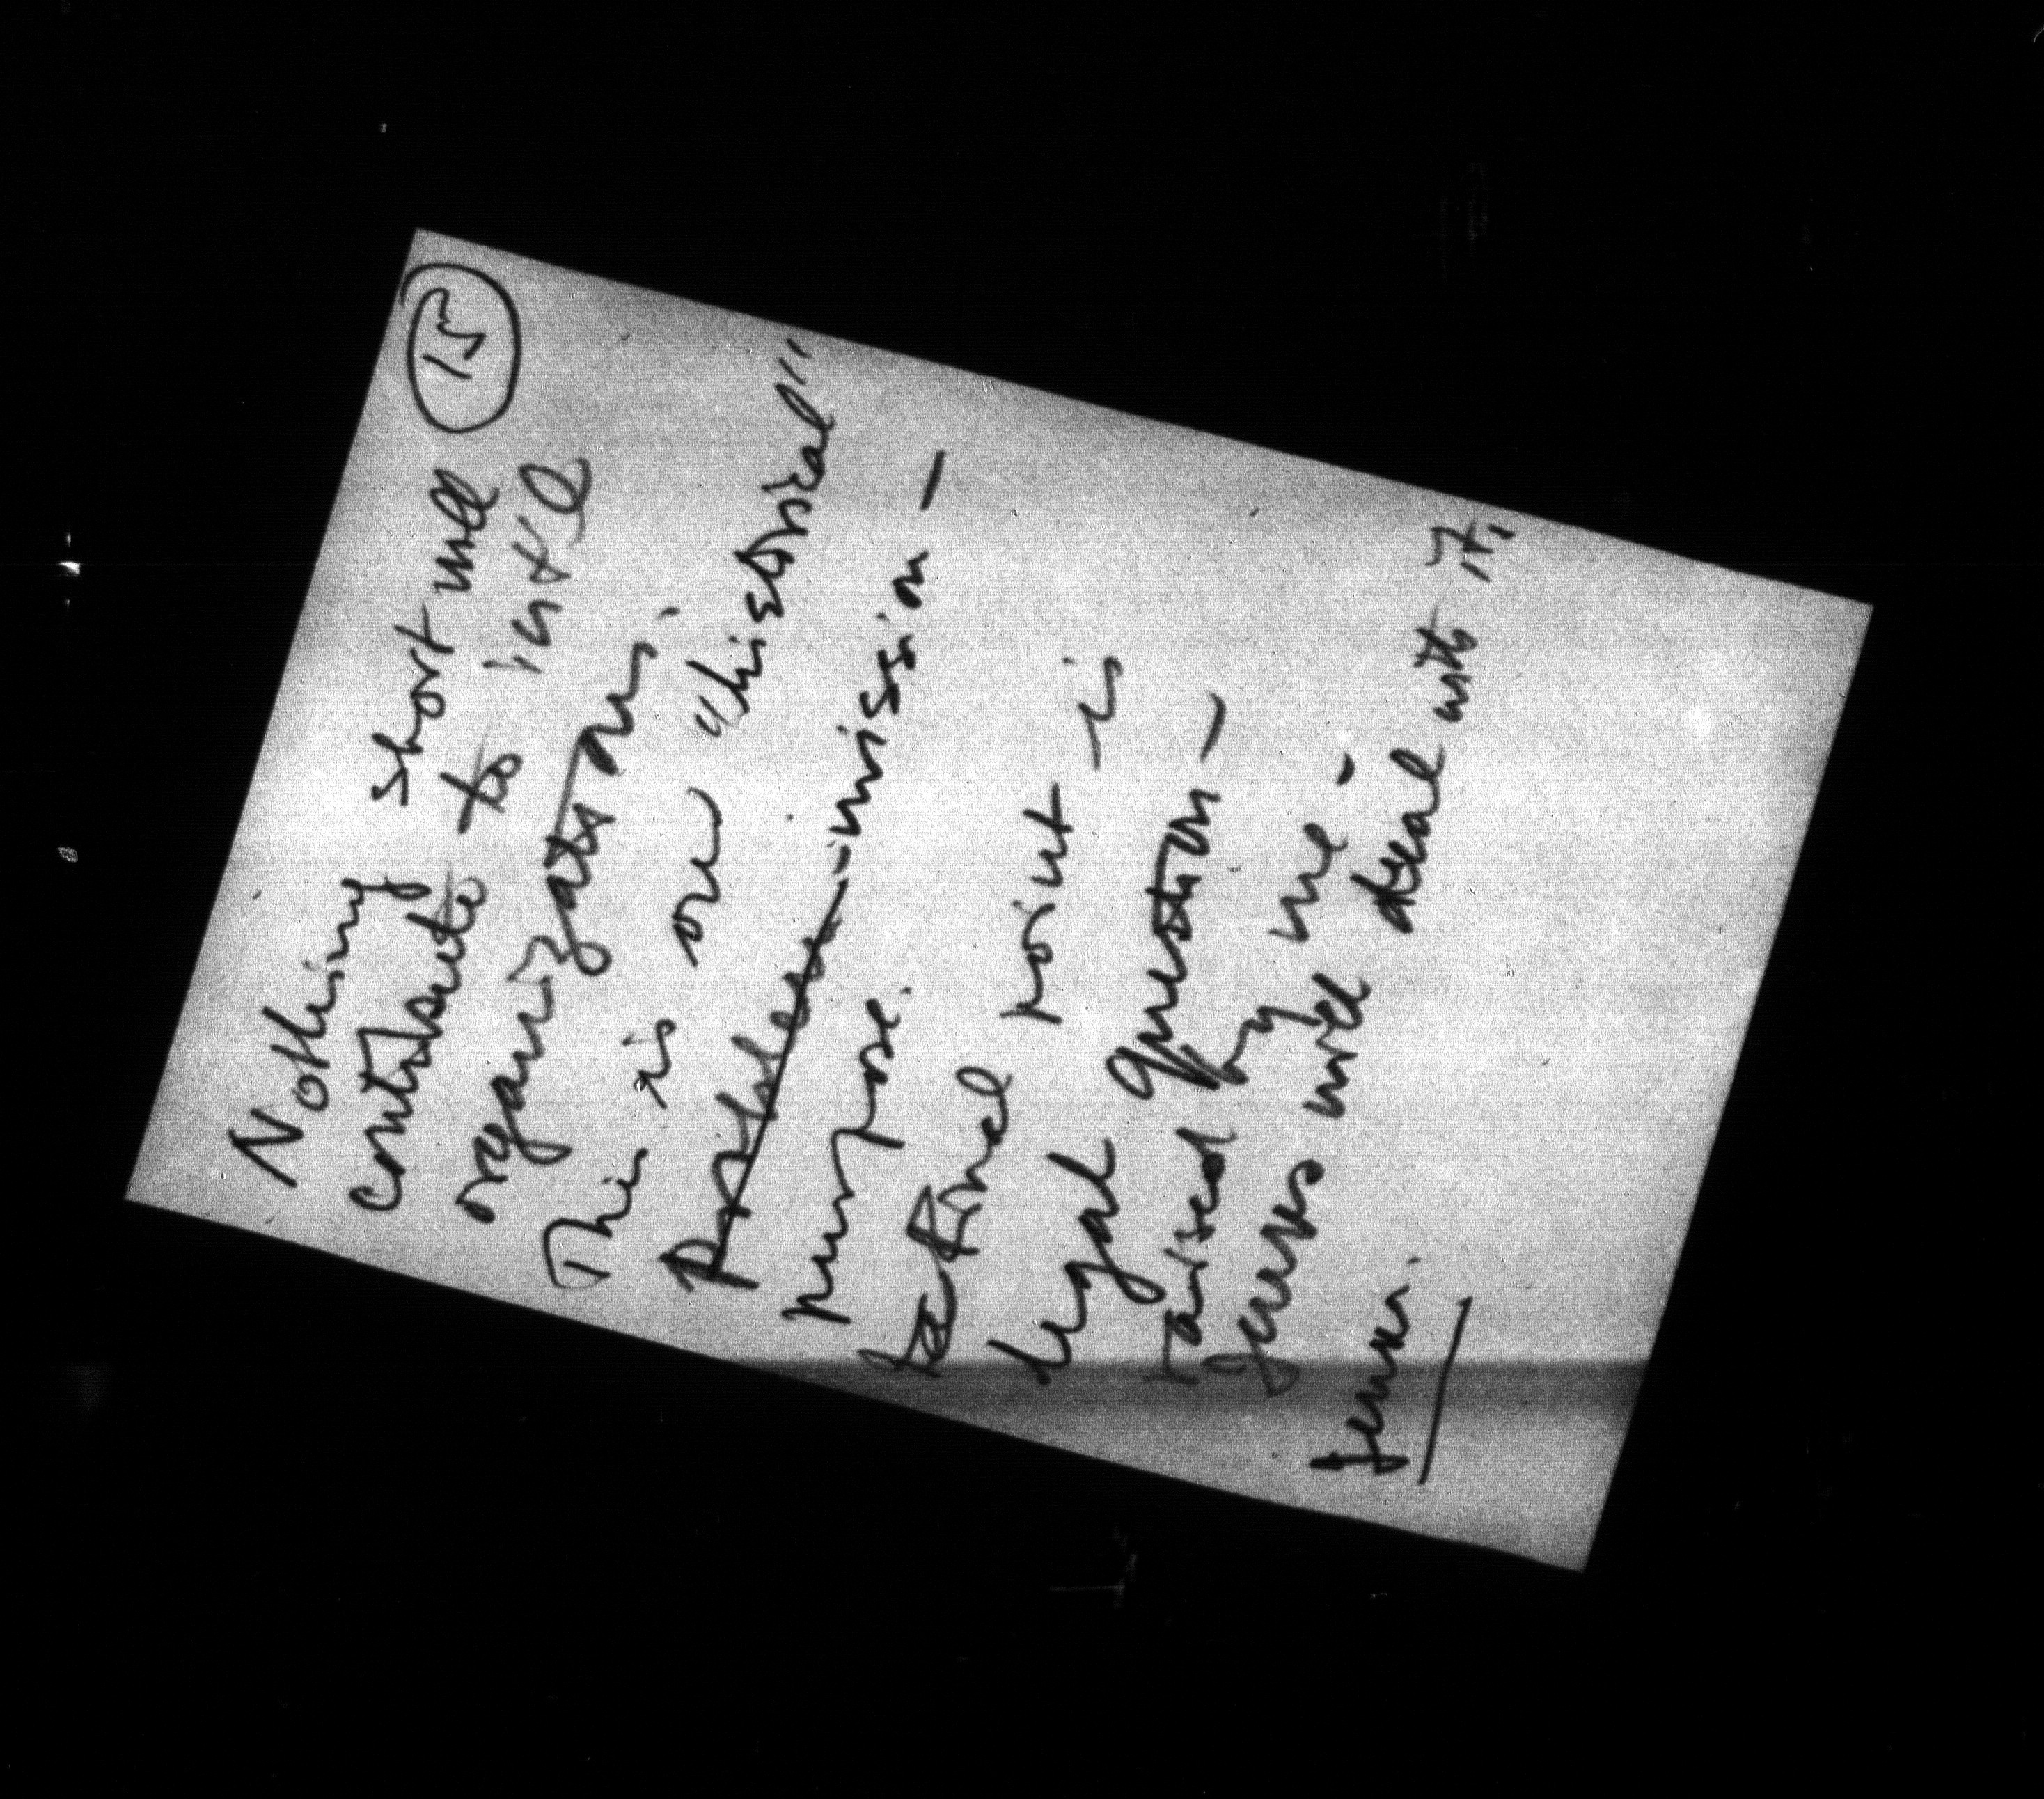 15
Nothing short will
contribute to intl
organization.
This is our "historical"
problem mission –
purpose.
National point is
legal question –
raised by me –
Jenks will deal with it.